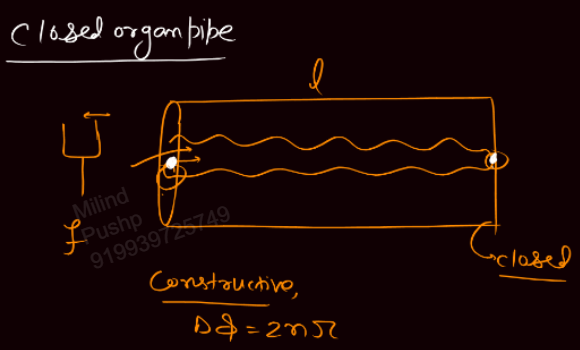 Closed organ pipe
l
f
Milind
Pushp
919939725749
closed
Constructive,
Δϕ = 2nπ